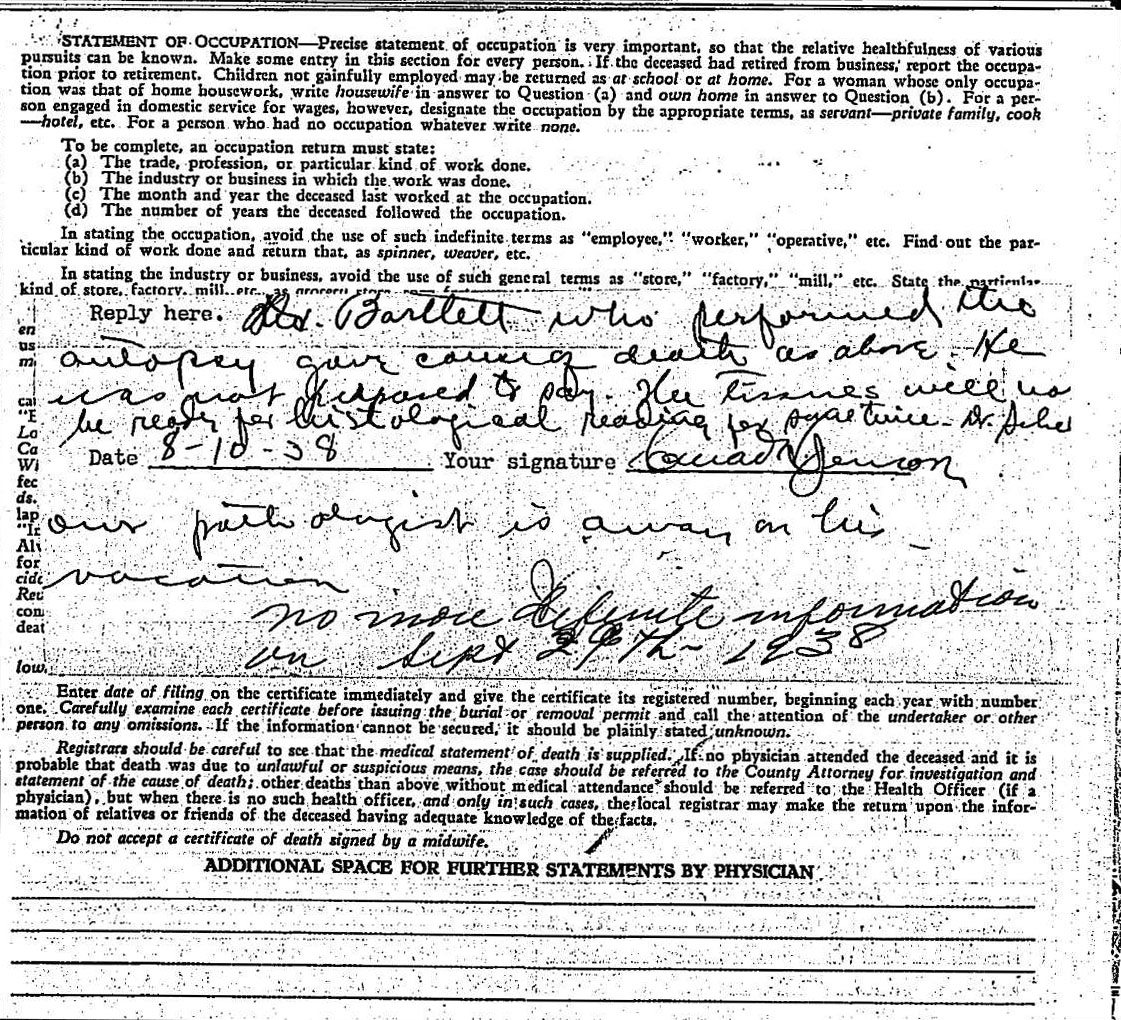 STATEMENT OF OCCUPATION—Precise statement of occupation is very important, so that the relative healthfulness of various
pursuits can be known. Make some entry in this section for every person. If the deceased had retired from business, report the occupa-
tion prior to retirement. Children not gainfully employed may be returned as at school or at home. For a woman whose only occupa-
tion was that of home housework, write housewife in answer to Question (a) and own home in answer to Question (b). For a per-
son engaged in domestic service for wages, however, designate the occupation by the appropriate terms, as servant—private family, cook
—hotel, etc. For a person who had no occupation whatever write none.
To be complete, an occupation return must state:
(a) The trade, profession, or particular kind of work done.
(b) The industry or business in which the work was done.
(c) The month and year the deceased last worked at the occupation.
(d) The number of years the deceased followed the occupation.
In stating the occupation, avoid the use of such indefinite terms as "employee," "worker," "operative," etc. Find out the par-
ticular kind of work done and return that, as spinner, weaver, etc.
In stating the industry or business, avoid the use of such general terms as "store," "factory," "mill," etc. State the particular
kind of store, factory, mill, etc., as grocery store,
Reply here. Dr. Bartlett who performed the
en
us
m
autopsy gave cause of death as above. He
was not prepared to say. The tissues will no
cal
"E
be ready for histological reading for
Dr.
Lo
Ca
Date 8-10-38 Your signature Conrad Jenson
Wi
fec
ds.
lap
our pathologist is away on his
"Ir
Alv
for
cide
vacation
Reu
no more Definite information
con
deat
on Sept 29th - 1938
low.
Enter date of filing on the certificate immediately and give the certificate its registered number, beginning each year with number
one. Carefully examine each certificate before issuing the burial or removal permit and call the attention of the undertaker or other
person to any omissions. If the information cannot be secured, it should be plainly stated unknown.
Registrars should be careful to see that the medical statement of death is supplied. If no physician attended the deceased and it is
probable that death was due to unlawful or suspicious means, the case should be referred to the County Attorney for investigation and
statement of the cause of death; other deaths than above without medical attendance should be referred to the Health Officer (if a
physician), but when there is no such health officer, and only in such cases, the local registrar may make the return upon the infor-
mation of relatives or friends of the deceased having adequate knowledge of the facts.
Do not accept a certificate of death signed by a midwife.
ADDITIONAL SPACE FOR FURTHER STATEMENTS BY PHYSICIAN